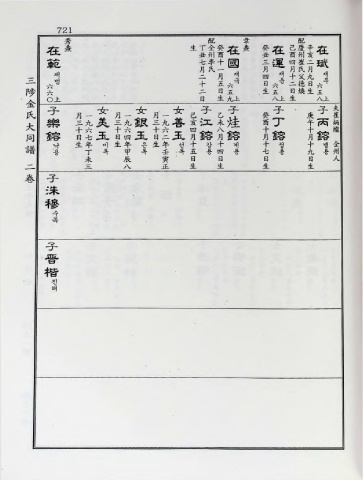 721
在珷 재무 上 六五八
辛亥二月九日生
配慶州崔氏文德煥
己酉四月十二日生
在運 재운 上 六五八
癸丑三月四日生
在國 재국 上 六五九
癸酉十一月五日生
配全州李氏
丁丑七月二十二日生
章燾
在範 재범 上 六六〇
秀燾
夫崔炳 全州人
子丙鎔 병용
庚午十月十九日生
子丁鎔 정용
癸酉十月十七日生
子炷鎔
乙未八月十四日生
子江鎔 강용
己亥四月十五日生
女善玉 선옥
一九六二年壬寅正月三十日生
女銀玉 은옥
一九六四年甲辰八月三十日生
女美玉 미옥
一九六七年丁未三月三十日生
子樂鎔 낙용
子洙穆 수목
子晋楷
三陟金氏大同譜 二卷